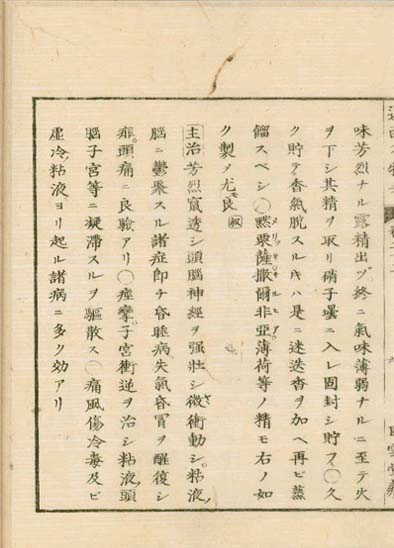 味芳烈ナル露精出ヅ終ニ氣味薄弱ナルニ至テ火
ヲ下シ其精ヲ取リ硝子壜ニ入レ固封シ貯フ〇久
ク貯テ香氣脱スルキハ是ニ迷迭香ヲ加ヘ再ビ蒸
餾スベシ〇黙栗薩撒爾非亜薄荷等ノ精モ右ノ如
ク製メ尤モ良
主治芳烈竄透シ頭腦神經ヲ強壮シ微衝動シ粘液
腦ニ鬱聚スル諸症即チ昏睡病失氣昏冒ヲ醒復シ
頭痛ニ良驗アリ〇痙攣子宮衝逆ヲ治シ粘液頭
腦子宮等ニ凝滞スルヲ驅散ス〇痛風傷冷毒及ビ
虚冷粘液ヨリ起ル諸病ニ多ク効アリ